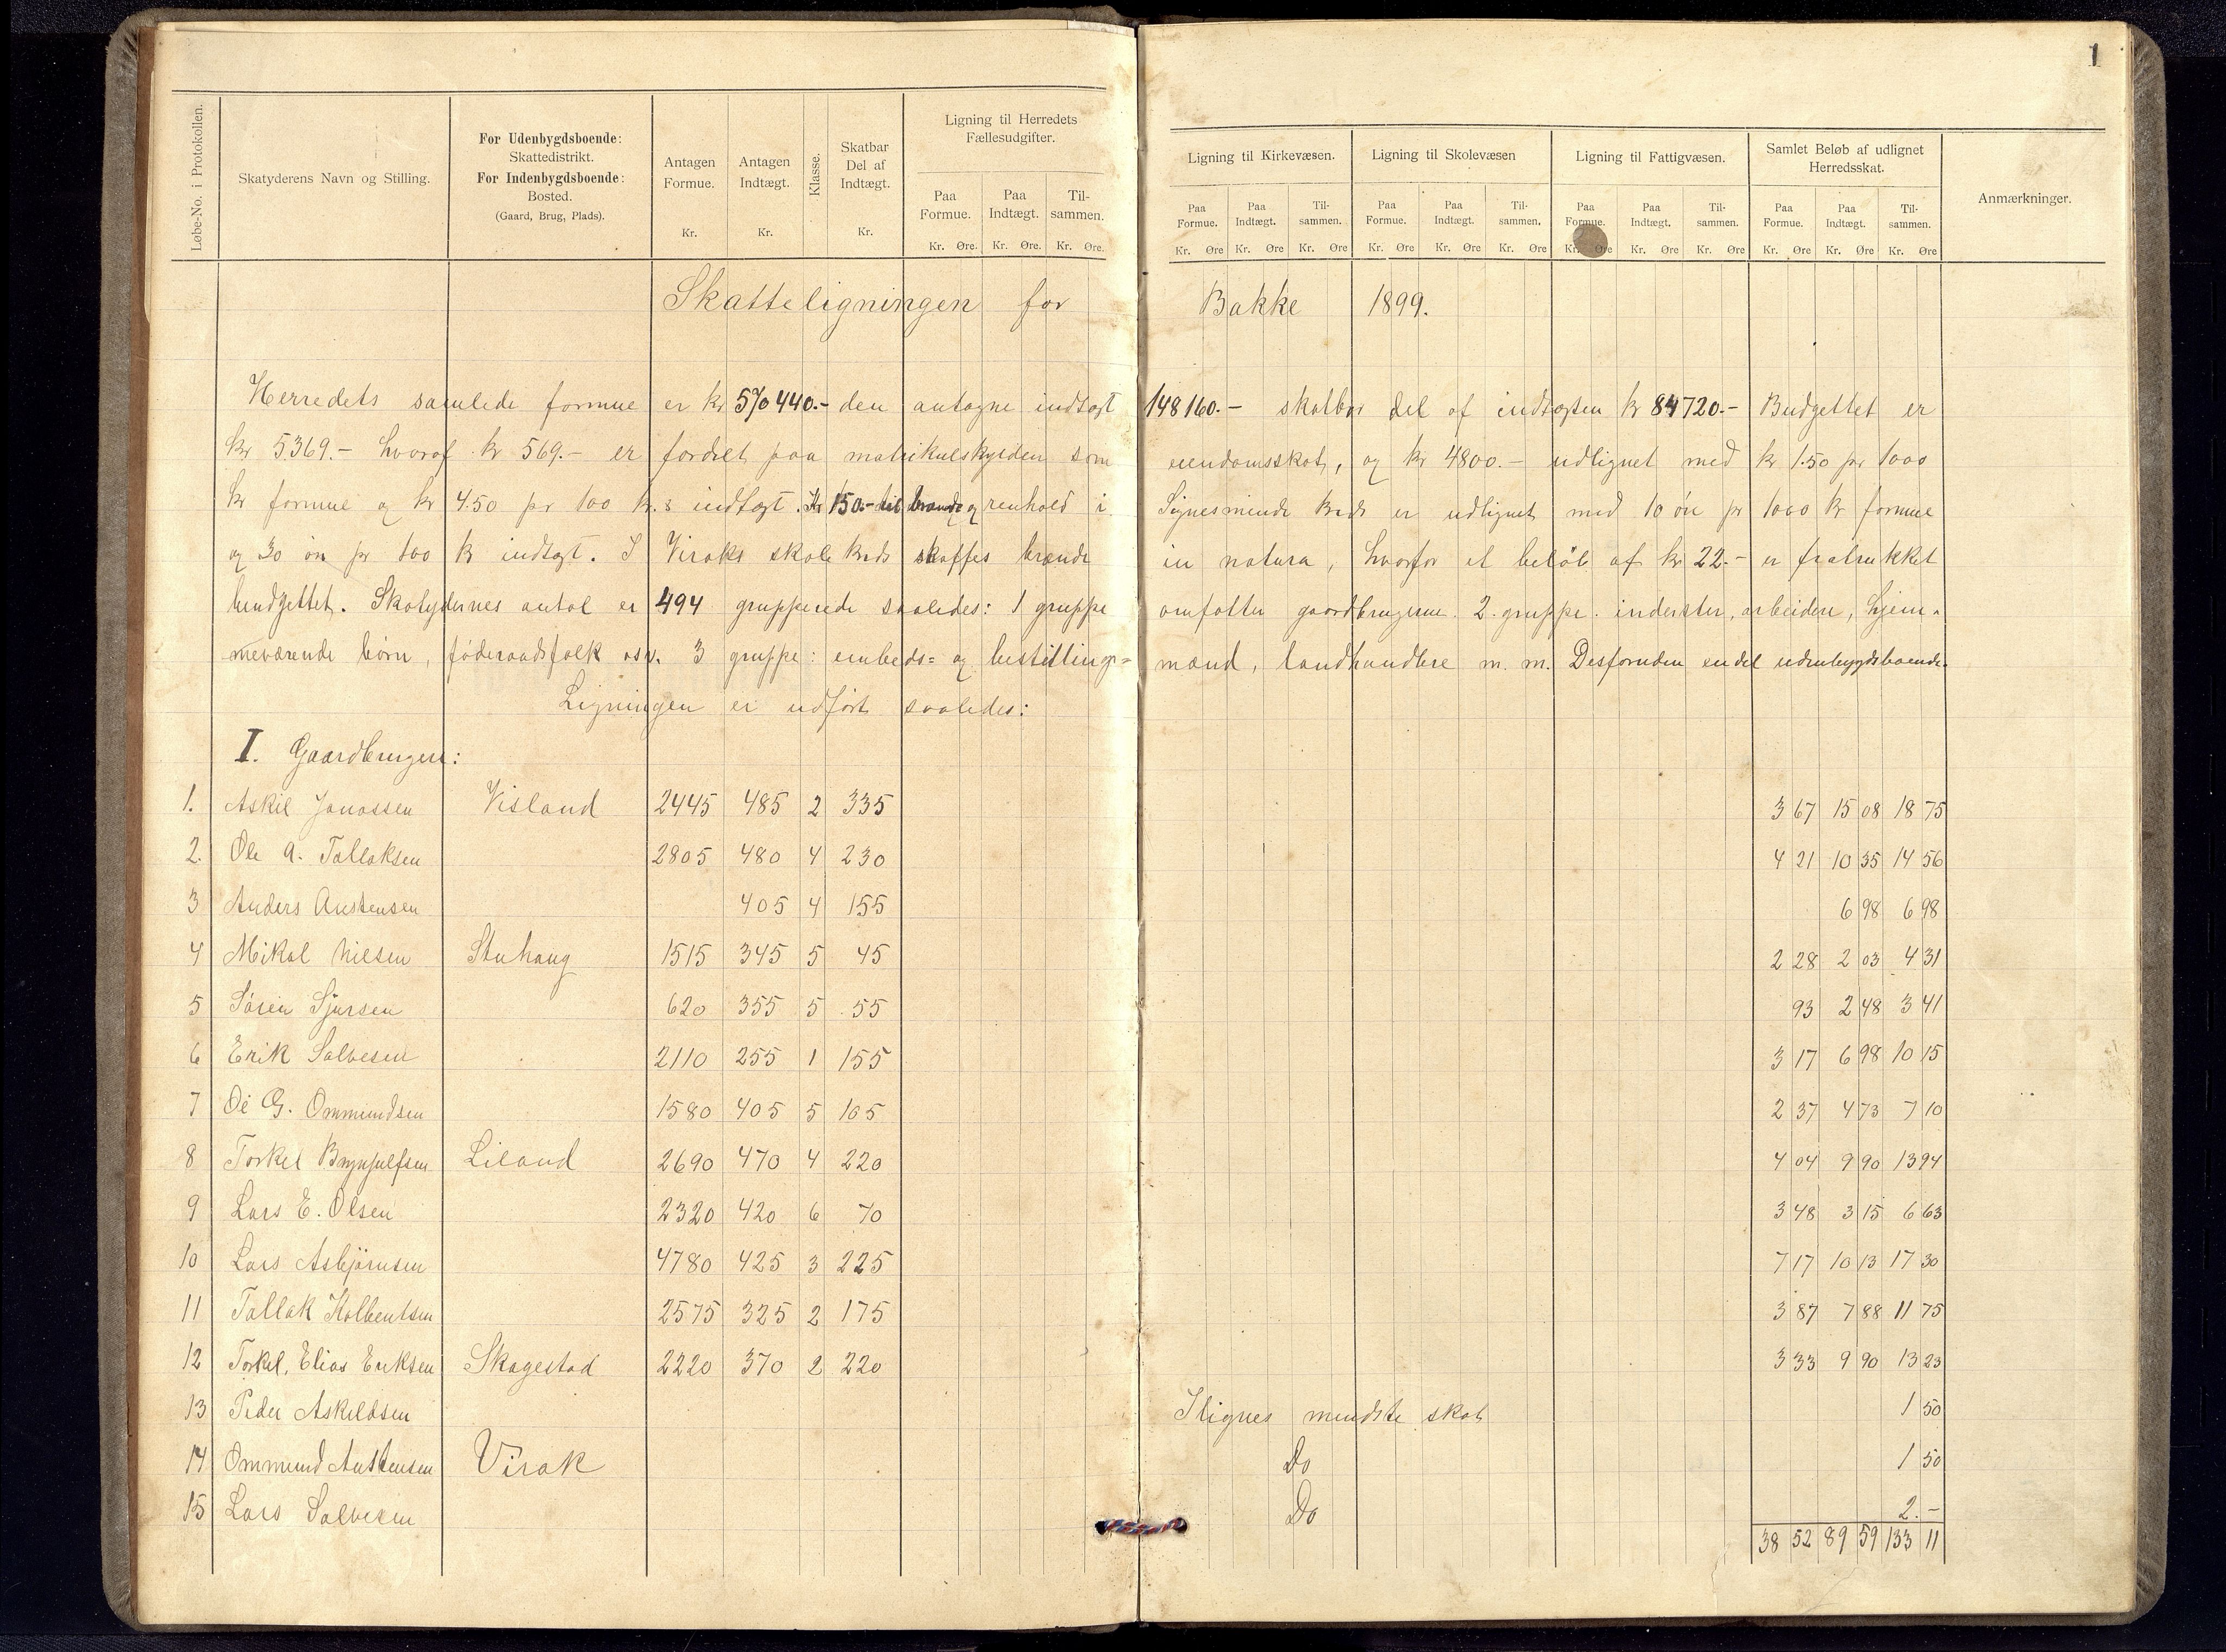 1
Løbe-No. i Protokollen.
Skatyderens Navn og Stilling.
For Udenbygdsboende:
Skattedistrikt.
For Indenbygdsboende:
Bosted.
(Gaard, Brug, Plads).
Antagen Formue. Kr.
Antagen Indtægt. Kr.
Klasse.
Skatbar Del af Indtægt. Kr.
Ligning til Herredets Fællesudgifter.
Paa Formue. Kr. Øre. Paa Indtægt. Kr. Øre. Til-sammen. Kr. Øre.
Ligning til Kirkevæsen.
Paa Formue. Kr. Øre Paa Indtægt. Kr. Øre Til-sammen. Kr. Øre
Ligning til Skolevæsen
Paa Formue. Kr. Øre Paa Indtægt. Kr. Øre Til-sammen. Kr. Øre
Ligning til Fattigvæsen.
Paa Formue. Kr. Øre Paa Indtægt. Kr. Øre Til-sammen. Kr. Øre
Samlet Beløb af udlignet Herredsskat.
Paa Formue. Kr. Øre Paa Indtægt. Kr. Øre Til-sammen. Kr. Øre
Anmærkninger.
Skatteligningen for Bakke 1899.
Herredets samlede formue er kr 570440.- den antagne indtægt 148160.- skatbar del af indtægten kr 84720.- Budgettet er
kr 5369.- hvoraf kr 569.- er fordelt paa matrikulskylden som eiendomsskat, og kr 4800.- udlignet med kr 1.50 pr 1000
kr formue og kr 4.50 pr 100 kr.s indtægt. Kr 150.- til brænde og renhold i Signesminde kreds er udlignet med 10 øre pr 1000 kr formue
og 30 øre pr 100 kr indtægt. I Viraks skolekreds skaffes brænde in natura, hvorfor et beløb af kr 22.- er fratrukket
budgettet. Skatydernes antal er 494 grupperede saaledes: 1 gruppe omfatter gaardbrugerne. 2. gruppe. inderster, arbeidere, hjem-
meværende børn, føderaadsfolk osv. 3 gruppe: embeds= og bestillings= mænd, landhandlere m. m. Desforuden en del udenbygdsboende.
Ligningen er udført saaledes:
I. Gaardbrugere:
1. Askil Jonassen Visland 2445 485 2 335 3 67 15 08 18 75
2. Ole A. Tallaksen 2805 480 4 230 4 21 10 35 14 56
3 Anders Austensen 405 4 155 6 98 6 98
4 Mikal Nilsen Stuhaug 1515 345 5 45 2 28 2 03 4 31
5 Søren Sjursen 620 355 5 55 93 2 48 3 41
6 Erik Salvesen 2110 255 1 155 3 17 6 98 10 15
7 Ole G. Ommundsen 1580 405 5 105 2 37 4 73 7 10
8 Torkel Brynjulfsen Liland 2690 470 4 220 4 04 9 90 13 94
9 Lars E. Olsen 2320 420 6 70 3 48 3 15 6 63
10 Lars Asbjørnsen 4780 425 3 225 7 17 10 13 17 30
11 Tallak Kolbentsen 2575 325 2 175 3 87 7 88 11 75
12 Torkel Elias Eriksen Skagestad 2220 370 2 220 3 33 9 90 13 23
13 Peder Askildsen Ilignes mindste skat 1 50
14 Ommund Austensen Virak Do 1 50
15 Lars Salvesen Do 2.-
38 52 89 59 133 11